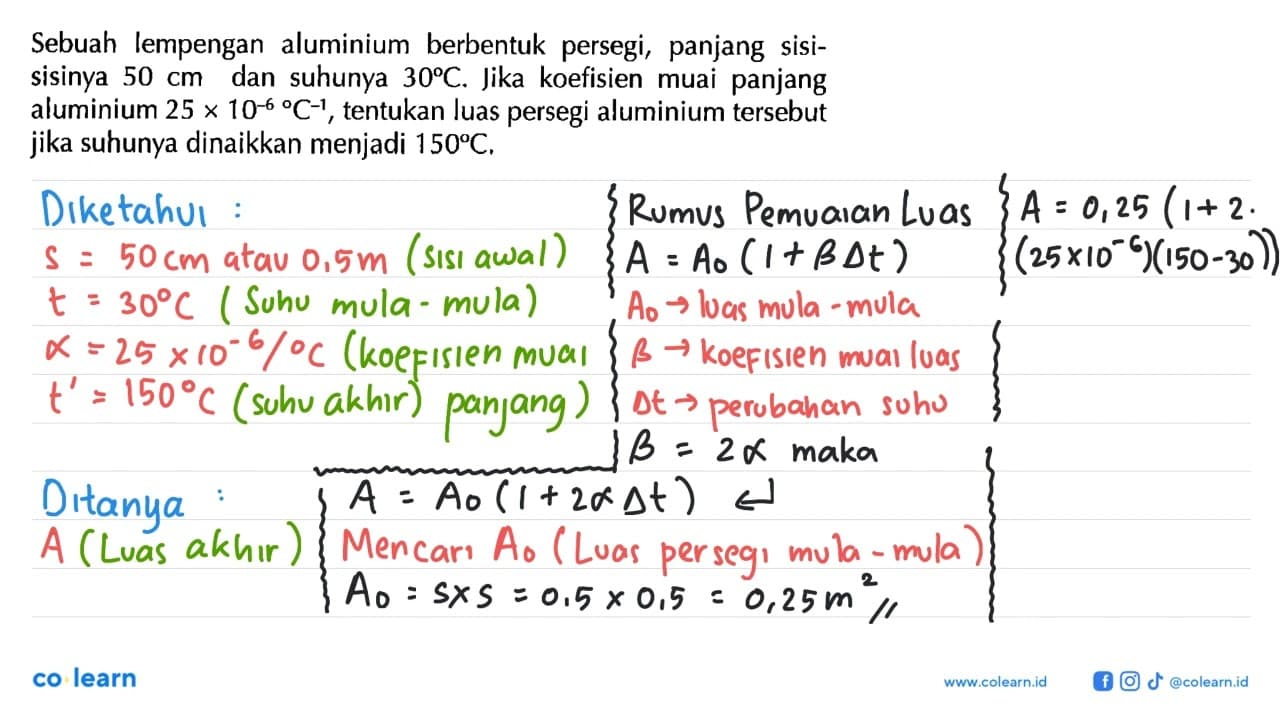 Sebuah lempengan aluminium berbentuk persegi, panjang sisi-
sisinya 50 cm dan suhunya 30°C. Jika koefisien muai panjang
aluminium 25 × 10⁻⁶ °C⁻¹, tentukan luas persegi aluminium tersebut
jika suhunya dinaikkan menjadi 150°C.
Diketahui :
s = 50 cm atau 0,5 m (sisi awal)
t = 30°C (Suhu mula-mula)
α = 25 × 10⁻⁶/°C (koefisien muai
panjang)
t' = 150°C (suhu akhir)
Ditanya :
A (Luas akhir)
Rumus Pemuaian Luas
A = A₀ (1 + β Δt)
A₀ → luas mula-mula
β → koefisien muai luas
Δt → perubahan suhu
β = 2α maka
A = A₀ (1 + 2α Δt) ↵
Mencari A₀ (Luas persegi mula-mula)
A₀ = s × s = 0.5 × 0,5 = 0,25 m² //
A = 0,25 (1 + 2.
(25×10⁻⁶)(150-30))
co learn
www.colearn.id
@colearn.id